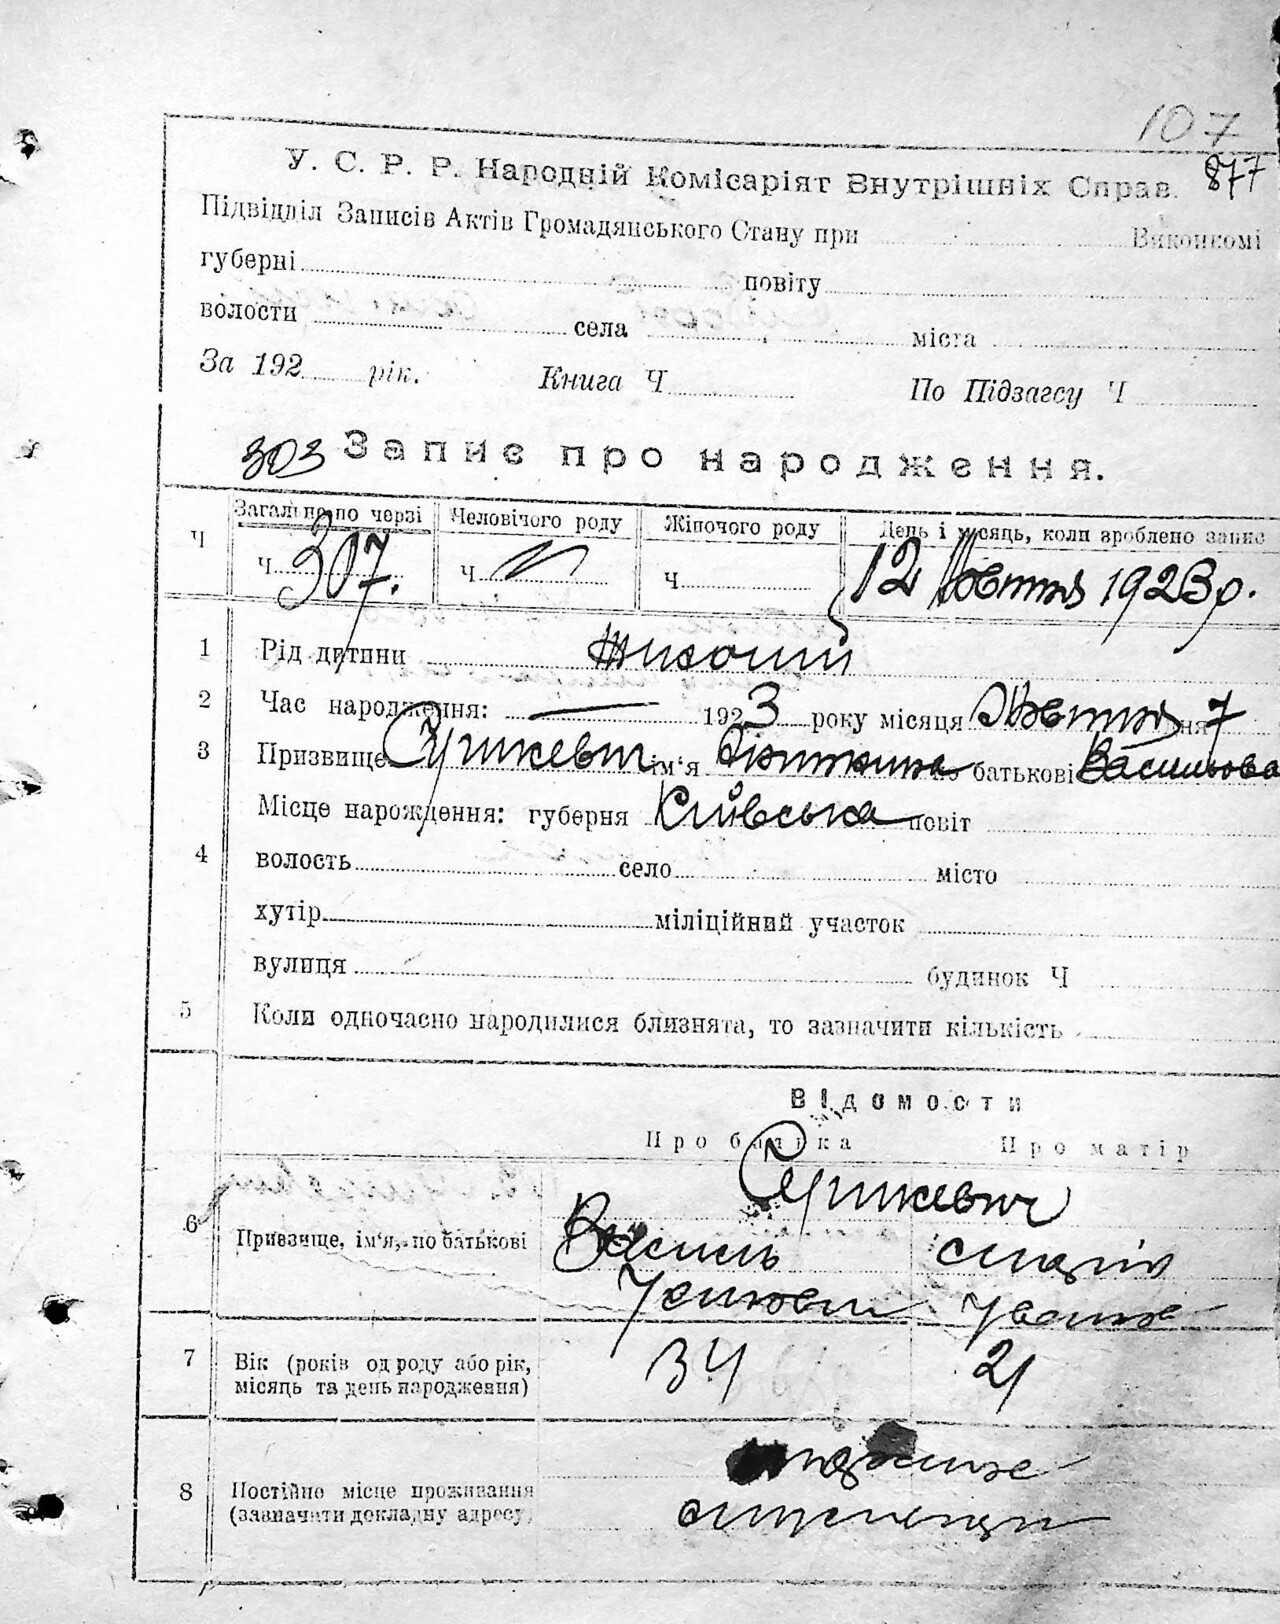 107
877
У. С. Р. Р. Народній Комісаріят Внутрішніх Справ.
Підвідділ Записів Актів Громадянського Стану при Виконкомі
губерні повіту
волости села міста
За 192 рік. Книга Ч По Підзагсу Ч
303 Запис про народження.
Ч Загально по черзі Чоловічого роду Жіночого роду День і місяць, коли зроблено запис
Ч 307. Ч Ч 12 Жовтня 1923 р.
1 Рід дитини жиночий
2 Час народження: 1923 року місяця Жовтня дня 7
3 Призвище ім'я по батькові Васильова
Місце народження: губерня Київська повіт
4 волость село місто
хутір міліційний участок
вулиця будинок Ч
5 Коли одночасно народилися близнята, то зазначити кількість
Відомости
Про батька Про матір
6 Призвище, ім'я, по батькові Василь Марія
7 Вік (років од роду або рік, 34 21
місяць та день народження)
8 Постійне місце проживання
(зазначити докладну адресу)